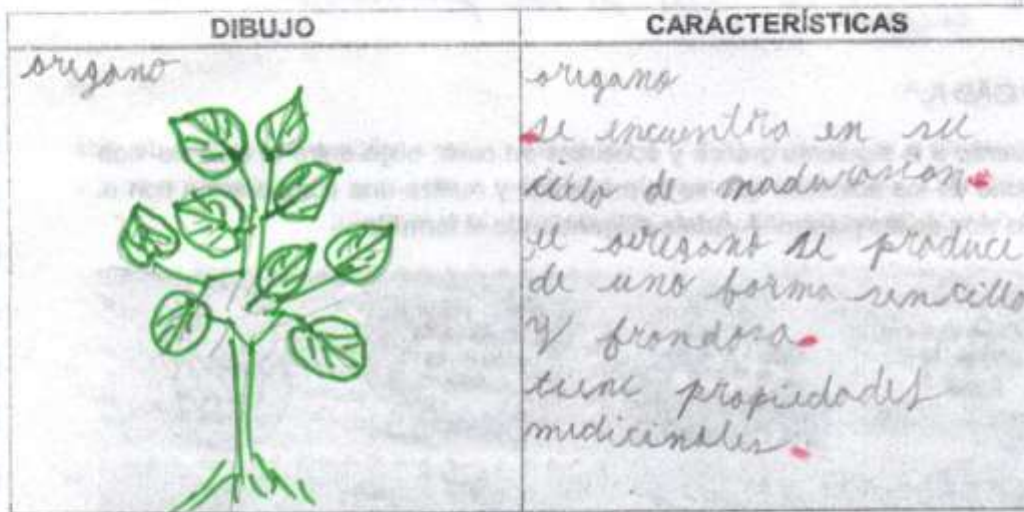 DIBUJO
CARÁCTERÍSTICAS
oregano
origano
se encuentra en su
ciclo de madurasion.
el oregano se produce
de una forma sencilla
y frondosa.
tiene propiedades
medicinales.